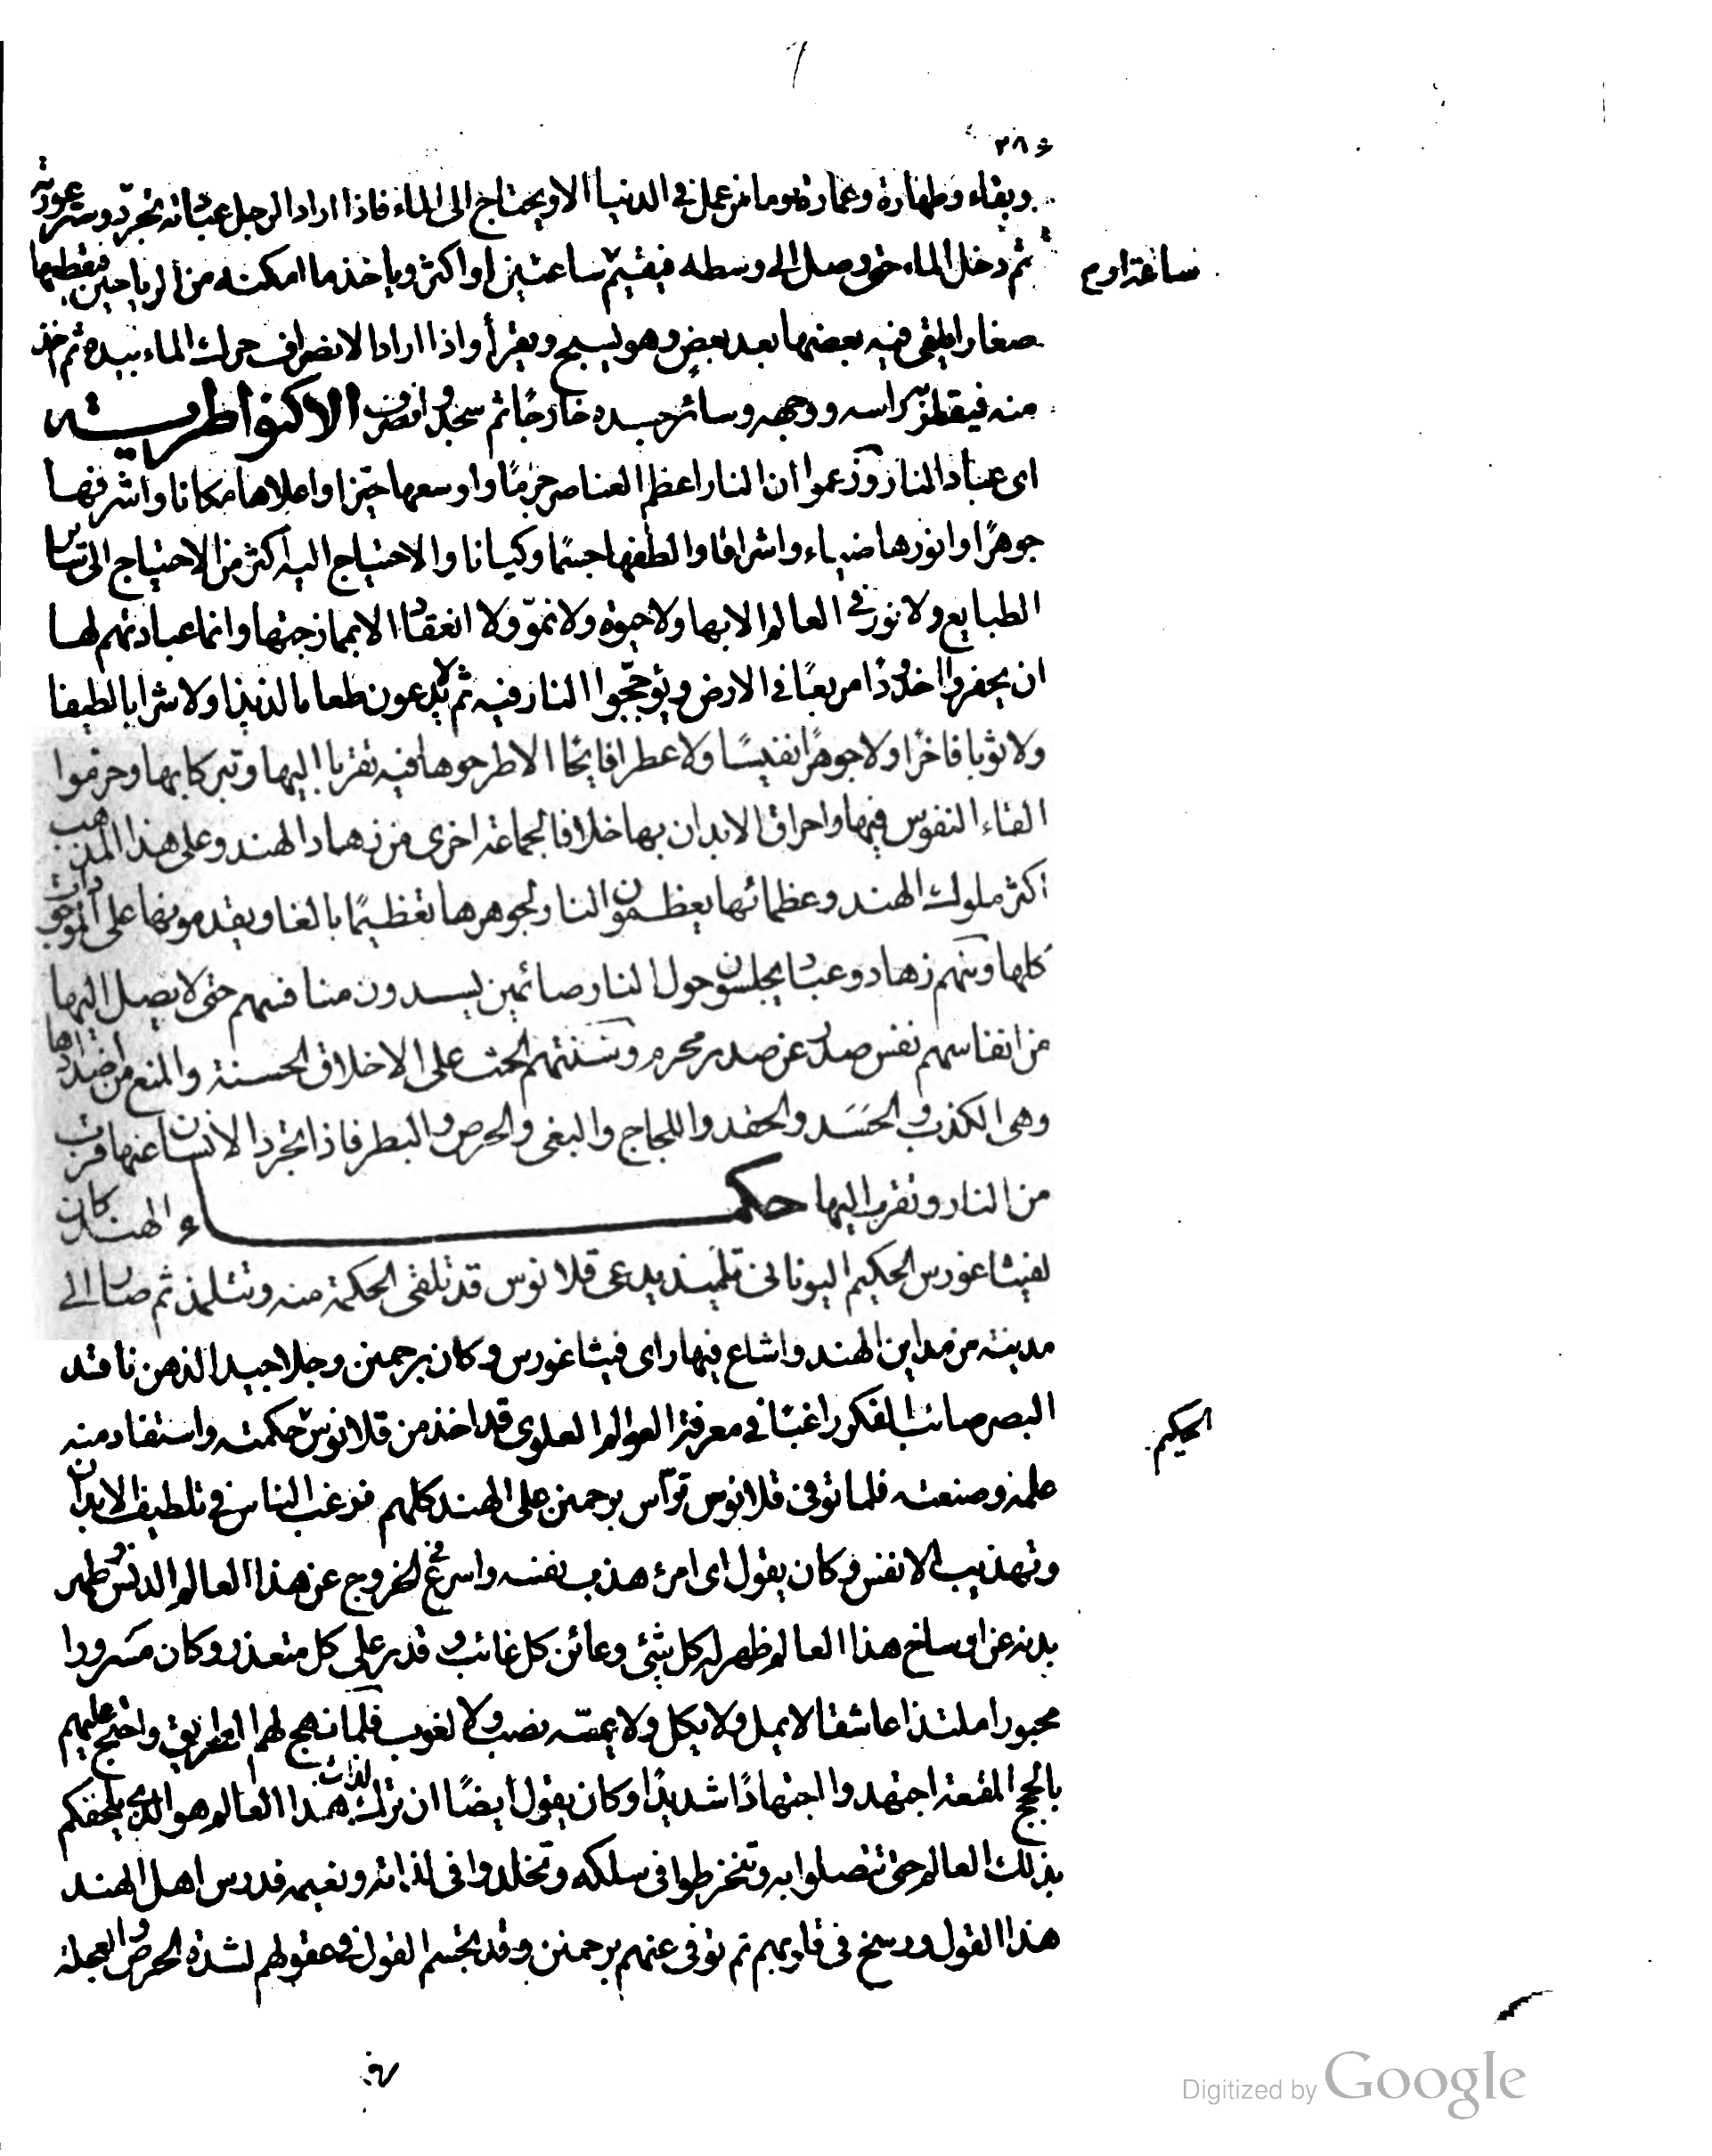 ٢٨٦
وبقاء وطهارة وعمارة وما من عمل في الدنيا الا ويحتاج الى الماء فاذا اراد الرجل عبادته تجرد وستر عورته
ثم دخل الماء حتى وصل الى وسطه فيقيم ساعتين او اكثر وياخذ ما امكنه من الرياحين فيقطعها
ساعة او م
صغارا يلقى فيه بعضها بعد بعض وهو يسبح ويقرأ واذا اراد الانصراف حرك الماء بيده ثم اخذ
منه فيقطر براسه ووجهه وسائر جسده خارجا ثم سجد وانصرف الاكنواطرية
اى عباد النار وزعموا ان النار اعظم العناصر جرما واوسعها حيزا واعلاها مكانا واشرفها
جوهرا وانورها ضياء واشراقا والطفها جسما وكيانا والاحتياج اليه اكثر من الاحتياج الى سائر
الطبايع ولا نور في العالم الا بها ولا حيوة ولا نمو ولا انعقاد الا بممازجتها وانما عبادتهم لها
ان يحفروا اخدودا مربعا في الارض ويؤججوا النار فيه ثم لا يدعون طعاما لذيذا ولا شرابا لطيفا
ولا ثوبا فاخرا ولا جوهرا نفيسا ولا عطرا فايحا الا طرحوها فيه تقربا اليها وتبركا بها وحرموا
القاء النفوس فيها واحراق الابدان بها خلافا لجماعة اخرى من زهاد الهند وعلى هذا المذهب
اكثر ملوك الهند وعظمائها يعظمون النار لجوهرها تعظيما بالغا ويقدمونها على الموجودات
كلها ومنهم زهاد وعباد يجلسون حول النار صائمين يسدون منافسهم حتى لا يصل اليها
من انفاسهم نفس صدر عن صدر محرم وسنتهم الحث على الاخلاق الحسنة والمنع من اضدادها
وهى الكذب والحسد والحقد واللجاج والبغى والحرص والبطر فاذا تجرد الانسان عنها قرب
من النار وتقرب اليها حكماء الهند كان
لفيثاغورس الحكيم اليونانى تلميذ يدعى قلانوس قد تلقى الحكمة منه وتتلمذ ثم صار الى
مدينة من مداين الهند واشاع فيها راى فيثاغورس وكان برحمنن رجلا جيد الذهن ناقد
البصر صائب الفكر راغبا في معرفة العوالم العلوى قد اخذ من قلانوس حكمته واستفاد منه
الحكيم
علمه وصنعته فلما توفى قلانوس ترأس برحمنن على الهند كلهم فرغب الناس في تلطيف الابدان
وتهذيب الانفس وكان يقول اى امرئ هذب نفسه واسرع في الخروج عن هذا العالم الدنس وطهر
بدنه عن اوساخ هذا العالم ظهر له كل شئ وعائن كل غائب وقدر على كل متعذر وكان مسرورا
محبورا ملتذا عاشقا لا يمل ولا يكل ولا يمسه نصب ولا لغوب فلما نهج لهم الطريق واحتج عليهم
بالحجج المقنعة اجتهدوا اجتهادا شديدا وكان يقول ايضا ان ترك لذات هذا العالم هو الذي يلحقكم
بذلك العالم حتى تتصلوا به وتنخرطوا فى سلكه وتخلدوا فى لذاته ونعيمه فدرس اهل الهند
هذا القول ورسخ فى قلوبهم ثم توفى عنهم برحمنن وقد تجسم القول في عقولهم لشدة الحرص والعجلة
Digitized by Google